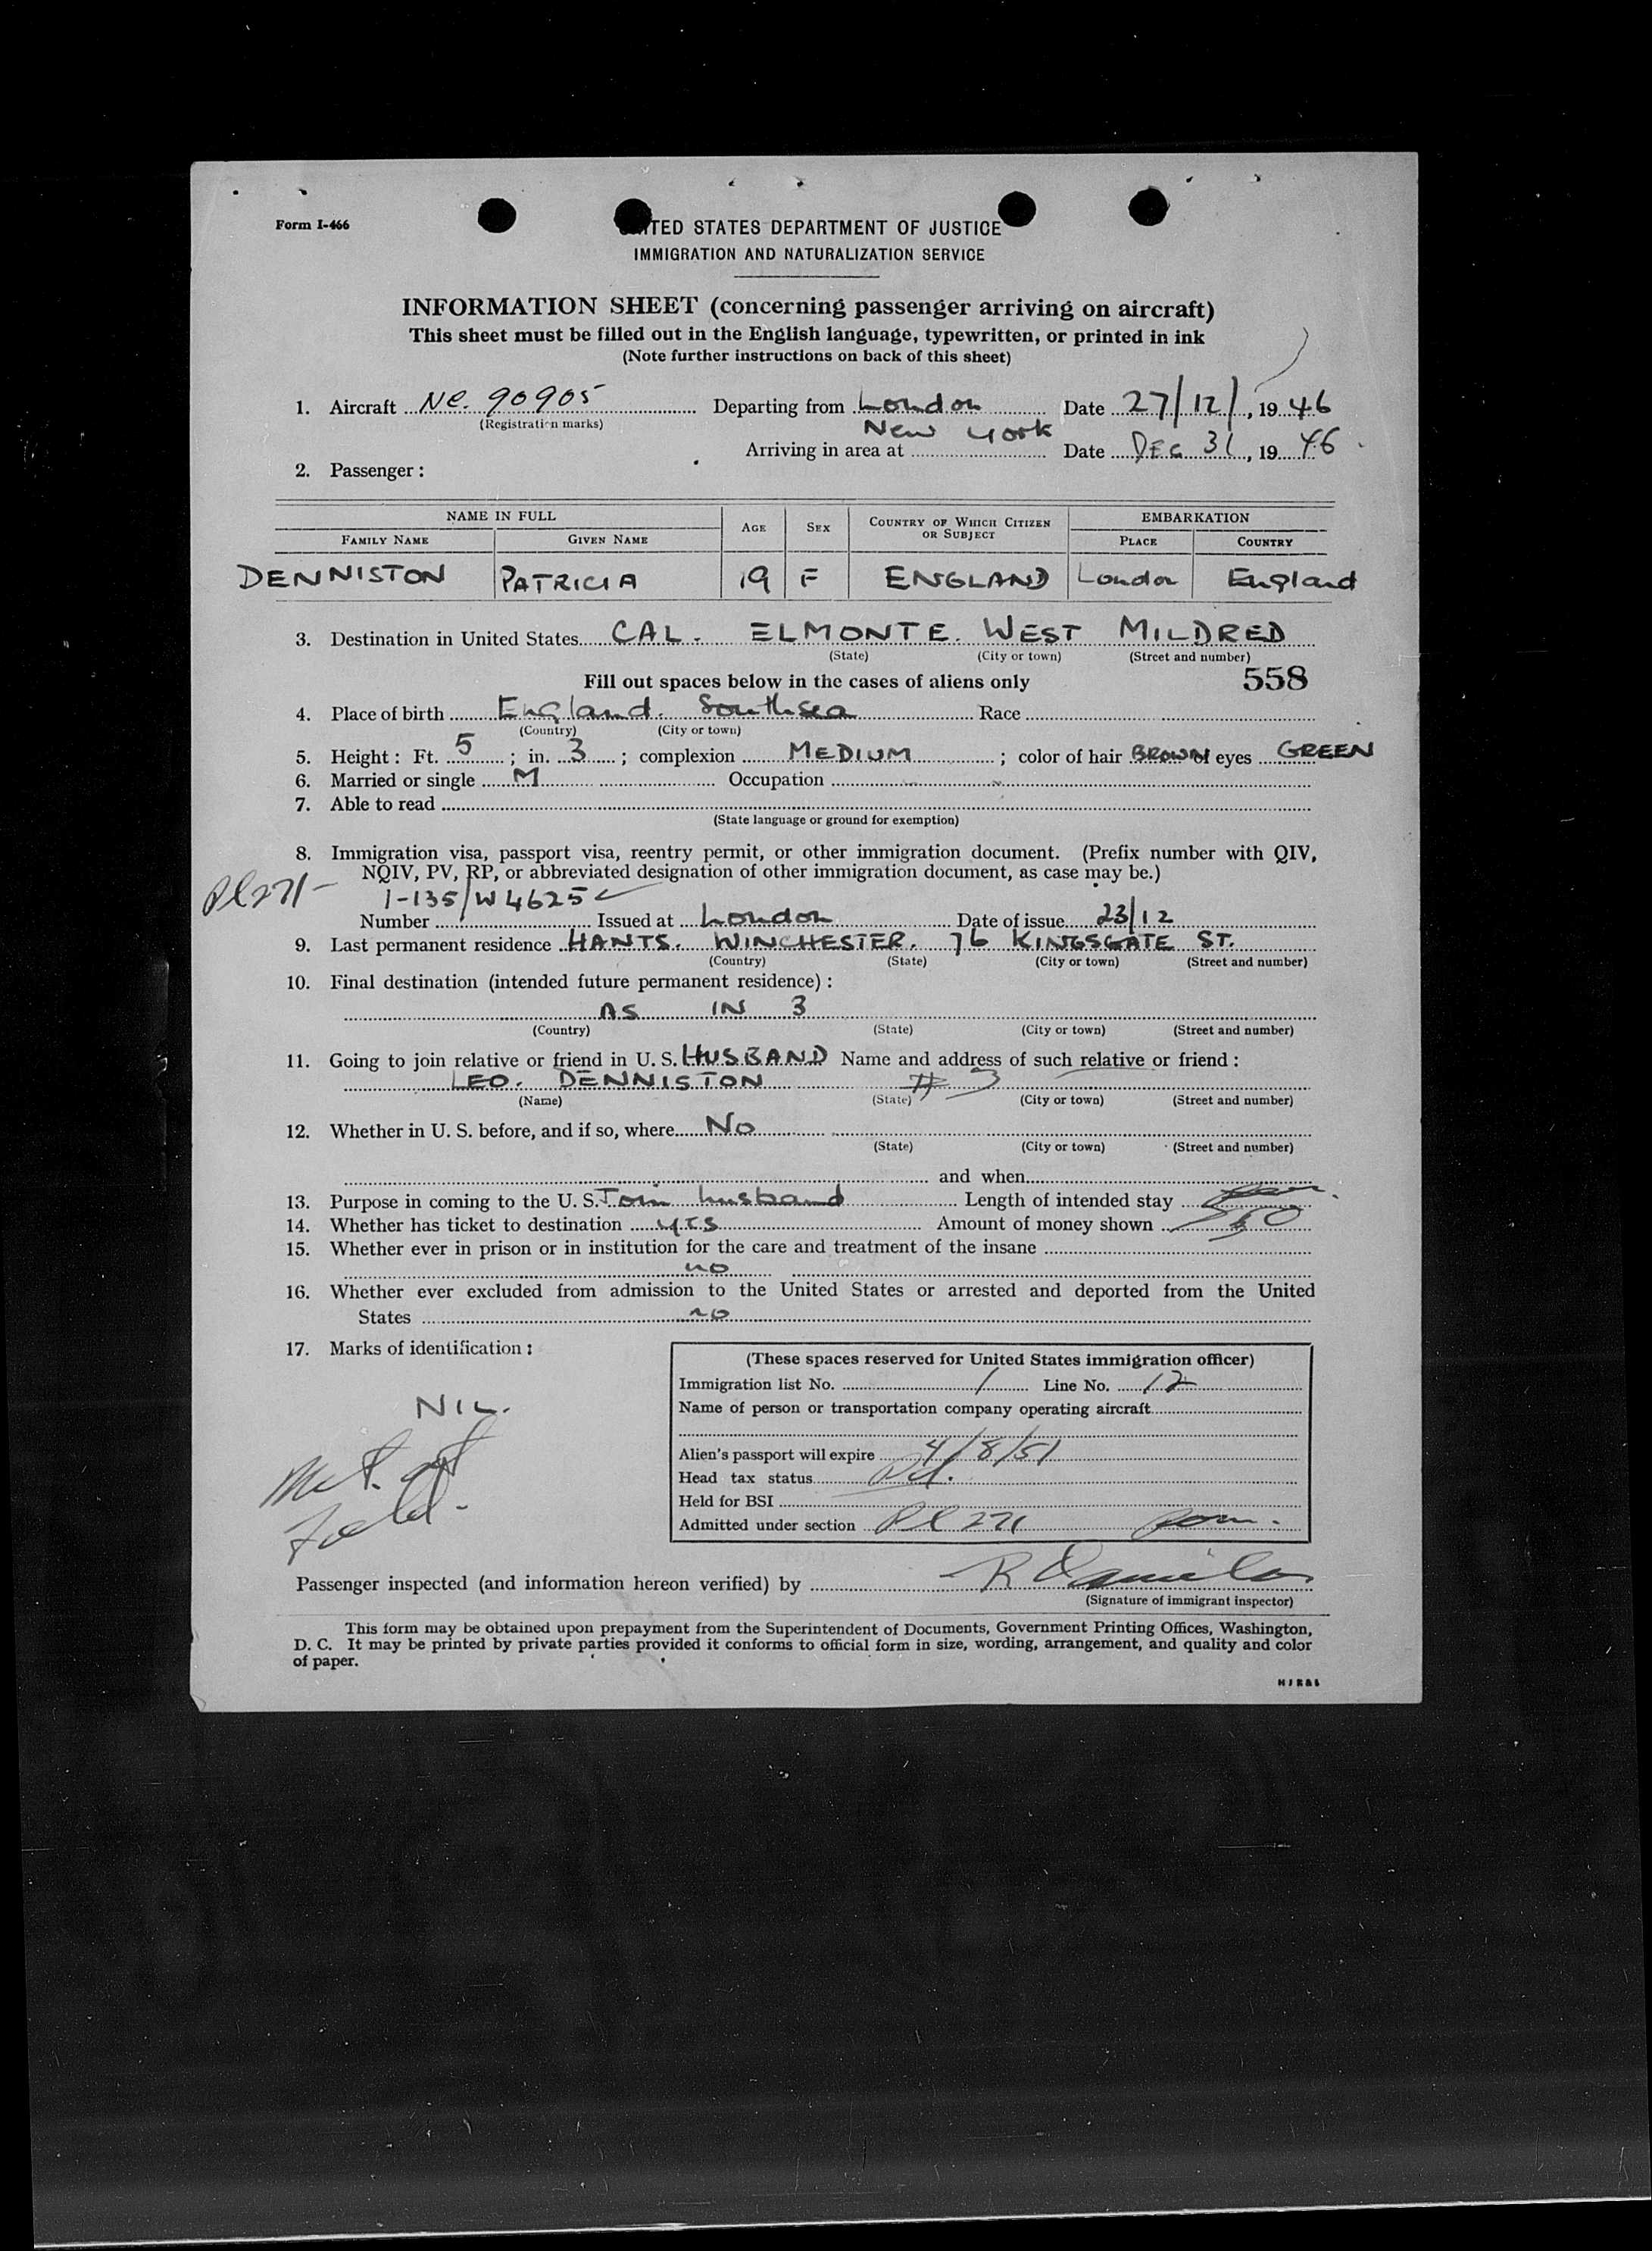 Form I-466
UNITED STATES DEPARTMENT OF JUSTICE
IMMIGRATION AND NATURALIZATION SERVICE
INFORMATION SHEET (concerning passenger arriving on aircraft)
This sheet must be filled out in the English language, typewritten, or printed in ink
(Note further instructions on back of this sheet)
1. Aircraft Nc. 90905 Departing from London Date 27/12/, 1946
(Registration marks)
Arriving in area at New York Date DEC 31, 1946
2. Passenger:
NAME IN FULL AGE SEX COUNTRY OF WHICH CITIZEN OR SUBJECT EMBARKATION
FAMILY NAME GIVEN NAME PLACE COUNTRY
DENNISTON PATRICIA 19 F ENGLAND London England
3. Destination in United States CAL. ELMONTE. WEST MILDRED
(State) (City or town) (Street and number)
Fill out spaces below in the cases of aliens only 558
4. Place of birth England. Southsea Race
(Country) (City or town)
5. Height: Ft. 5; in. 3; complexion MEDIUM; color of hair BROWN of eyes GREEN
6. Married or single M Occupation
7. Able to read
(State language or ground for exemption)
8. Immigration visa, passport visa, reentry permit, or other immigration document. (Prefix number with QIV,
NQIV, PV, RP, or abbreviated designation of other immigration document, as case may be.)
Pl 271-
1-135/W4625
Number Issued at London Date of issue 23/12
9. Last permanent residence HANTS. WINCHESTER. 76 KINGSGATE ST.
(Country) (State) (City or town) (Street and number)
10. Final destination (intended future permanent residence):
AS IN 3
(Country) (State) (City or town) (Street and number)
11. Going to join relative or friend in U. S. HUSBAND Name and address of such relative or friend:
LEO. DENNISTON # 3
(Name) (State) (City or town) (Street and number)
12. Whether in U. S. before, and if so, where No
(State) (City or town) (Street and number)
and when
13. Purpose in coming to the U. S. Join husband Length of intended stay
14. Whether has ticket to destination yes Amount of money shown
15. Whether ever in prison or in institution for the care and treatment of the insane
no
16. Whether ever excluded from admission to the United States or arrested and deported from the United
States no
17. Marks of identification:
NIL.
Met. at
Field.
(These spaces reserved for United States immigration officer)
Immigration list No. 1 Line No. 12
Name of person or transportation company operating aircraft
Alien's passport will expire 4/8/51
Head tax status Pd.
Held for BSI
Admitted under section Pl 271 perm.
Passenger inspected (and information hereon verified) by
(Signature of immigrant inspector)
This form may be obtained upon prepayment from the Superintendent of Documents, Government Printing Offices, Washington,
D. C. It may be printed by private parties provided it conforms to official form in size, wording, arrangement, and quality and color
of paper.